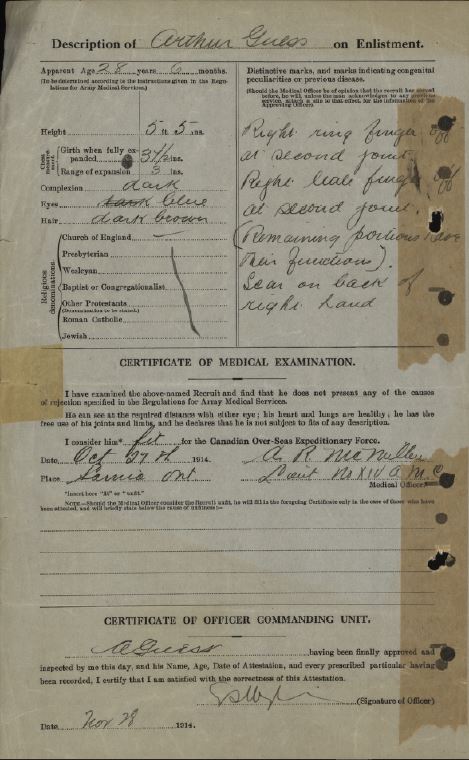 Description of Arthur Guess on Enlistment.
Apparent Age 28 years 6 months.
(To be determined according to the instructions given in the Regulations for Army Medical Services.)
Height 5 ft 5 ins.
Chest measurement
Girth when fully expanded 37½ ins.
Range of expansion 3 ins.
Complexion dark
Eyes dark blue
Hair dark brown
Religious denominations
Church of England
Presbyterian
Wesleyan
Baptist or Congregationalist
Other Protestants
(Denomination to be stated.)
Roman Catholic
Jewish
Distinctive marks, and marks indicating congenital
peculiarities or previous disease.
(Should the Medical Officer be of opinion that the recruit has served
before, he will, unless the man acknowledges to any previous
service, attach a slip to that effect, for the information of the
Approving Officer).
Right ring finger off
at second joint.
Right little finger off
at second joint.
(Remaining portions have
their functions).
Scar on back of
right hand
CERTIFICATE OF MEDICAL EXAMINATION.
I have examined the above-named Recruit and find that he does not present any of the causes
of rejection specified in the Regulations for Army Medical Services.
He can see at the required distance with either eye; his heart and lungs are healthy; he has the
free use of his joints and limbs, and he declares that he is not subject to fits of any description.
I consider him* fit for the Canadian Over-Seas Expeditionary Force.
Date Oct 27th 1914.
Place Sarnia Ont
A R McMillen
Lieut No XIV A.M.C
Medical Officer.
*Insert here "fit" or "unfit."
NOTE.—Should the Medical Officer consider the Recruit unfit, he will fill in the foregoing Certificate only in the case of those who have
been attested, and will briefly state below the cause of unfitness:—
CERTIFICATE OF OFFICER COMMANDING UNIT.
A Guess having been finally approved and
inspected by me this day, and his Name, Age, Date of Attestation, and every prescribed particular having
been recorded, I certify that I am satisfied with the correctness of this Attestation.
(Signature of Officer)
Date Nov 28 1914.